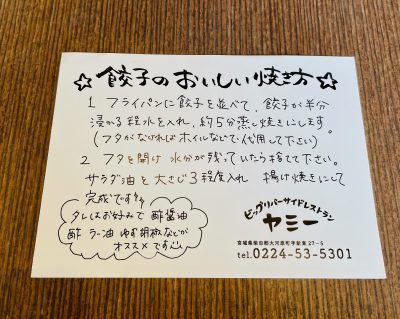 ☆餃子のおいしい焼き方☆
1 フライパンに餃子を並べて、餃子が半分
浸かる程水を入れ、約5分蒸し焼きにします
(フタがなければホイルなどで代用して下さい)。
2 フタを開け 水分が残っていたら捨てて下さい。
サラダ油を大さじ3程度入れ 揚げ焼きにして
完成です
タレはお好みで 酢醤油
酢 ラー油 ゆず胡椒などが
オススメです
ビッグリバーサイドレストラン
ヤミー
宮城県柴田郡大河原町字新東27-5
tel.0224-53-5301